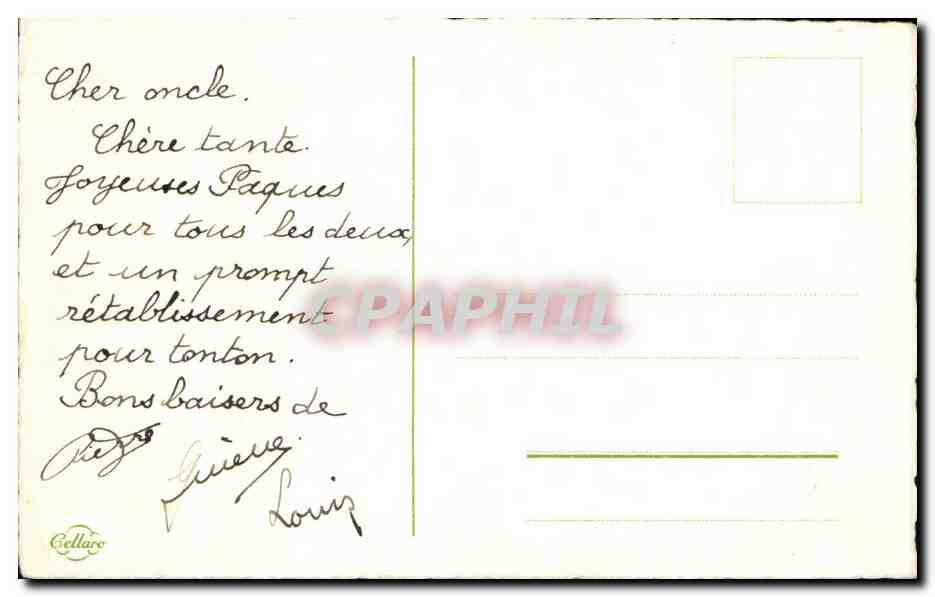 Cher oncle.
Chère tante.
Joyeuses Pâques
pour tous les deux,
et un prompt
rétablissement
pour tonton.
Bons baisers de
Pierre
Louis
Cellaro
CPAPHIL